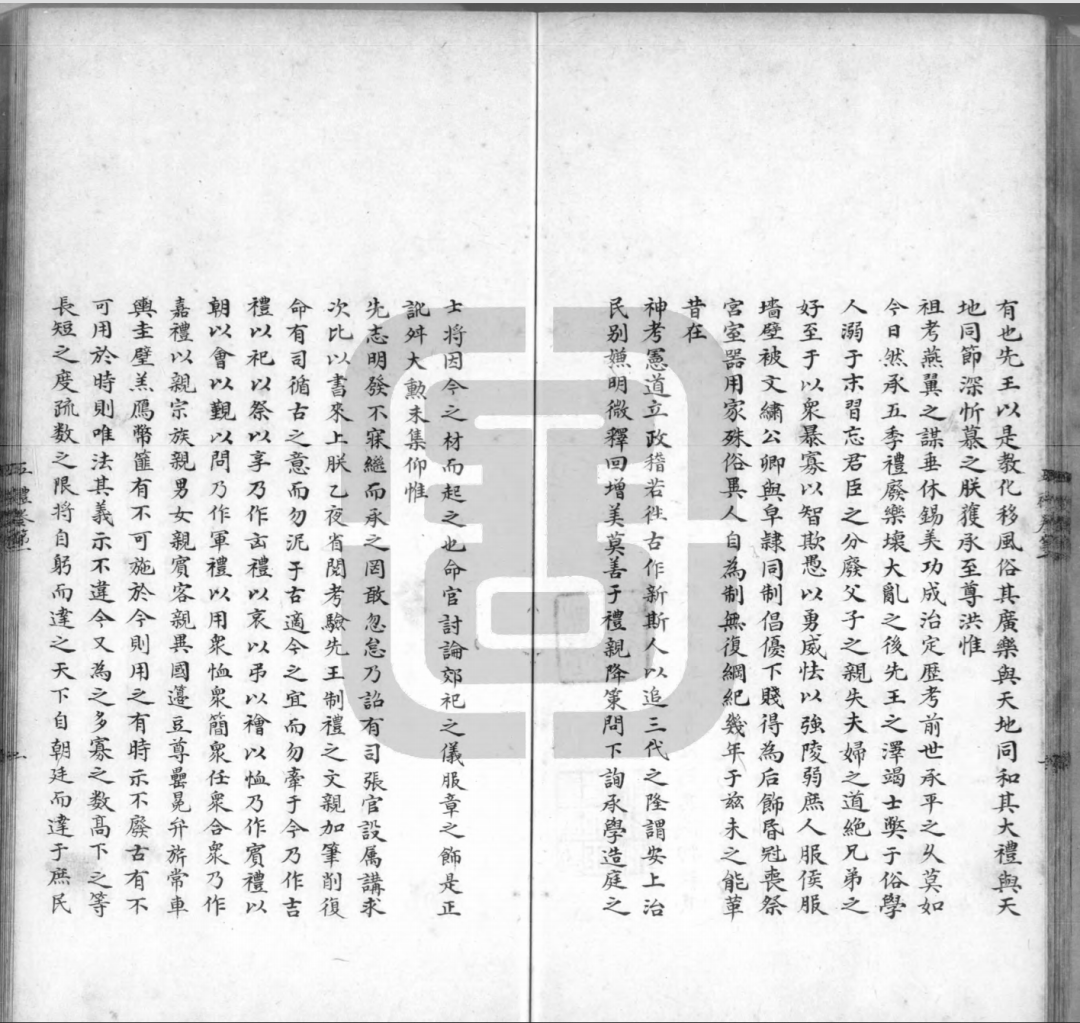 有也先王以是教化移風俗其廣樂與天地同和其大禮與天
地同節深忻慕之朕獲承至尊洪惟
祖考燕翼之謀垂休錫美功成治定歷考前世承平之久莫如
今日然承五季禮廢樂壞大亂之後先王之澤竭士獘于俗學
人溺于末習忘君臣之分廢父子之親失夫婦之道絶兄弟之
好至于以衆暴寡以智欺愚以勇威怯以強陵弱庶人服侯服
墻壁被文繡公卿與皁隷同制倡優下賤得為后飾昏冠喪祭
宮室器用家殊俗異人自為制無復綱紀幾年于兹未之能革
昔在
神考憲道立政稽若徃古作新斯人以追三代之隆謂安上治
民别嫌明微釋回增美莫善于禮親降策問下詢承學造庭之
士将因今之材而起之也命官討論郊祀之儀服章之飾是正
訛舛大勲未集仰惟
先志明發不寐繼而承之罔敢忽怠乃詔有司張官設属講求
次比以書來上朕乙夜省閱考驗先王制禮之文親加筆削復
命有司循古之意而勿泥于古適今之宜而勿牽于今乃作吉
禮以祀以祭以享乃作凶禮以哀以弔以禬以恤乃作賓禮以
朝以會以覲以問乃作軍禮以用衆恤衆簡衆任衆合衆乃作
嘉禮以親宗族親男女親賓客親異國籩豆尊罍冕弁旂常車
輿圭璧羔鴈幣篚有不可施於今則用之有時示不廢古有不
可用於時則唯法其義示不違今又為之多寡之數髙下之等
長短之度疏数之限将自躬而達之天下自朝廷而達于庶民